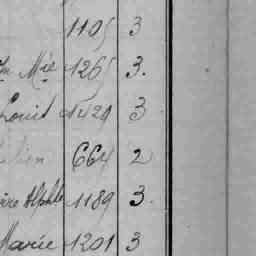 1105 3
Mie 1265 3.
Louis 1420 3
664 2
Alph 1189 3.
Marie 1201 3